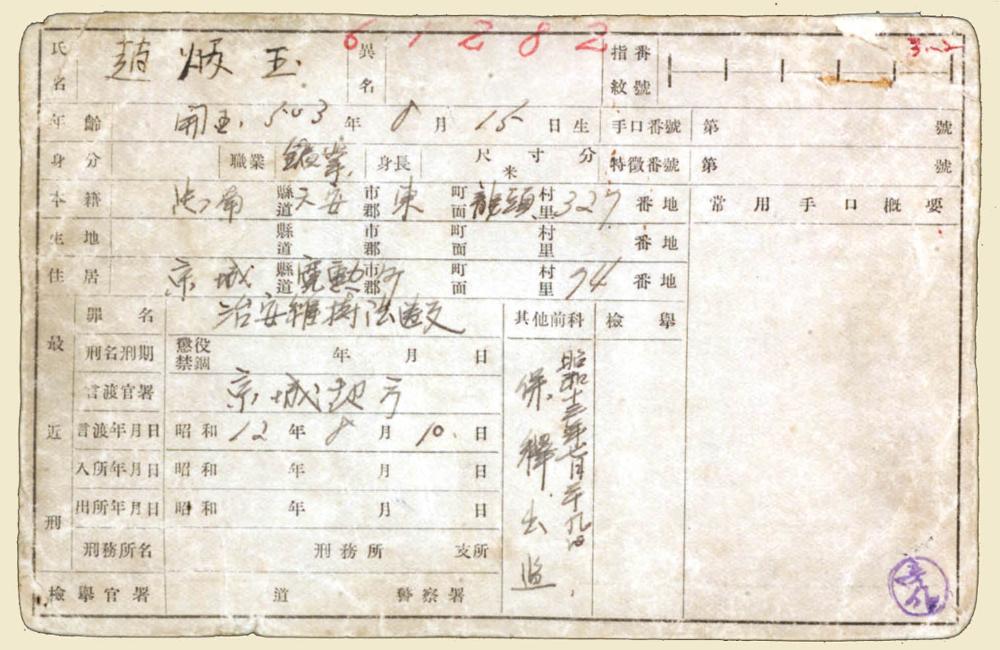 氏名 趙炳玉 異名 指紋番號
61282
3.-2
年齡 開國 503 年 8 月 15 日生 手口番號 第 號
身分 職業 鑛業 身長 尺 寸 分 米 特徵番號 第 號
本籍 忠南 縣道 天安 市郡 東 町面 龍頭 村里 327 番地 常用手口槪要
生地 縣道 市郡 町面 村里 番地
住居 京城 縣道 寬勳 市郡 町 町面 村里 74 番地
最近刑
罪名 治安維持法違反 其他前科 檢擧
刑名刑期 懲役 禁錮 年 月 日
言渡官署 京城
言渡年月日 昭和 12 年 8 月 10. 日
入所年月日 昭和 年 月 日
出所年月日 昭和 年 月 日
刑務所名 刑務所 支所
檢擧官署 道 警察署
昭和十三年七月二十九日
保釋出監